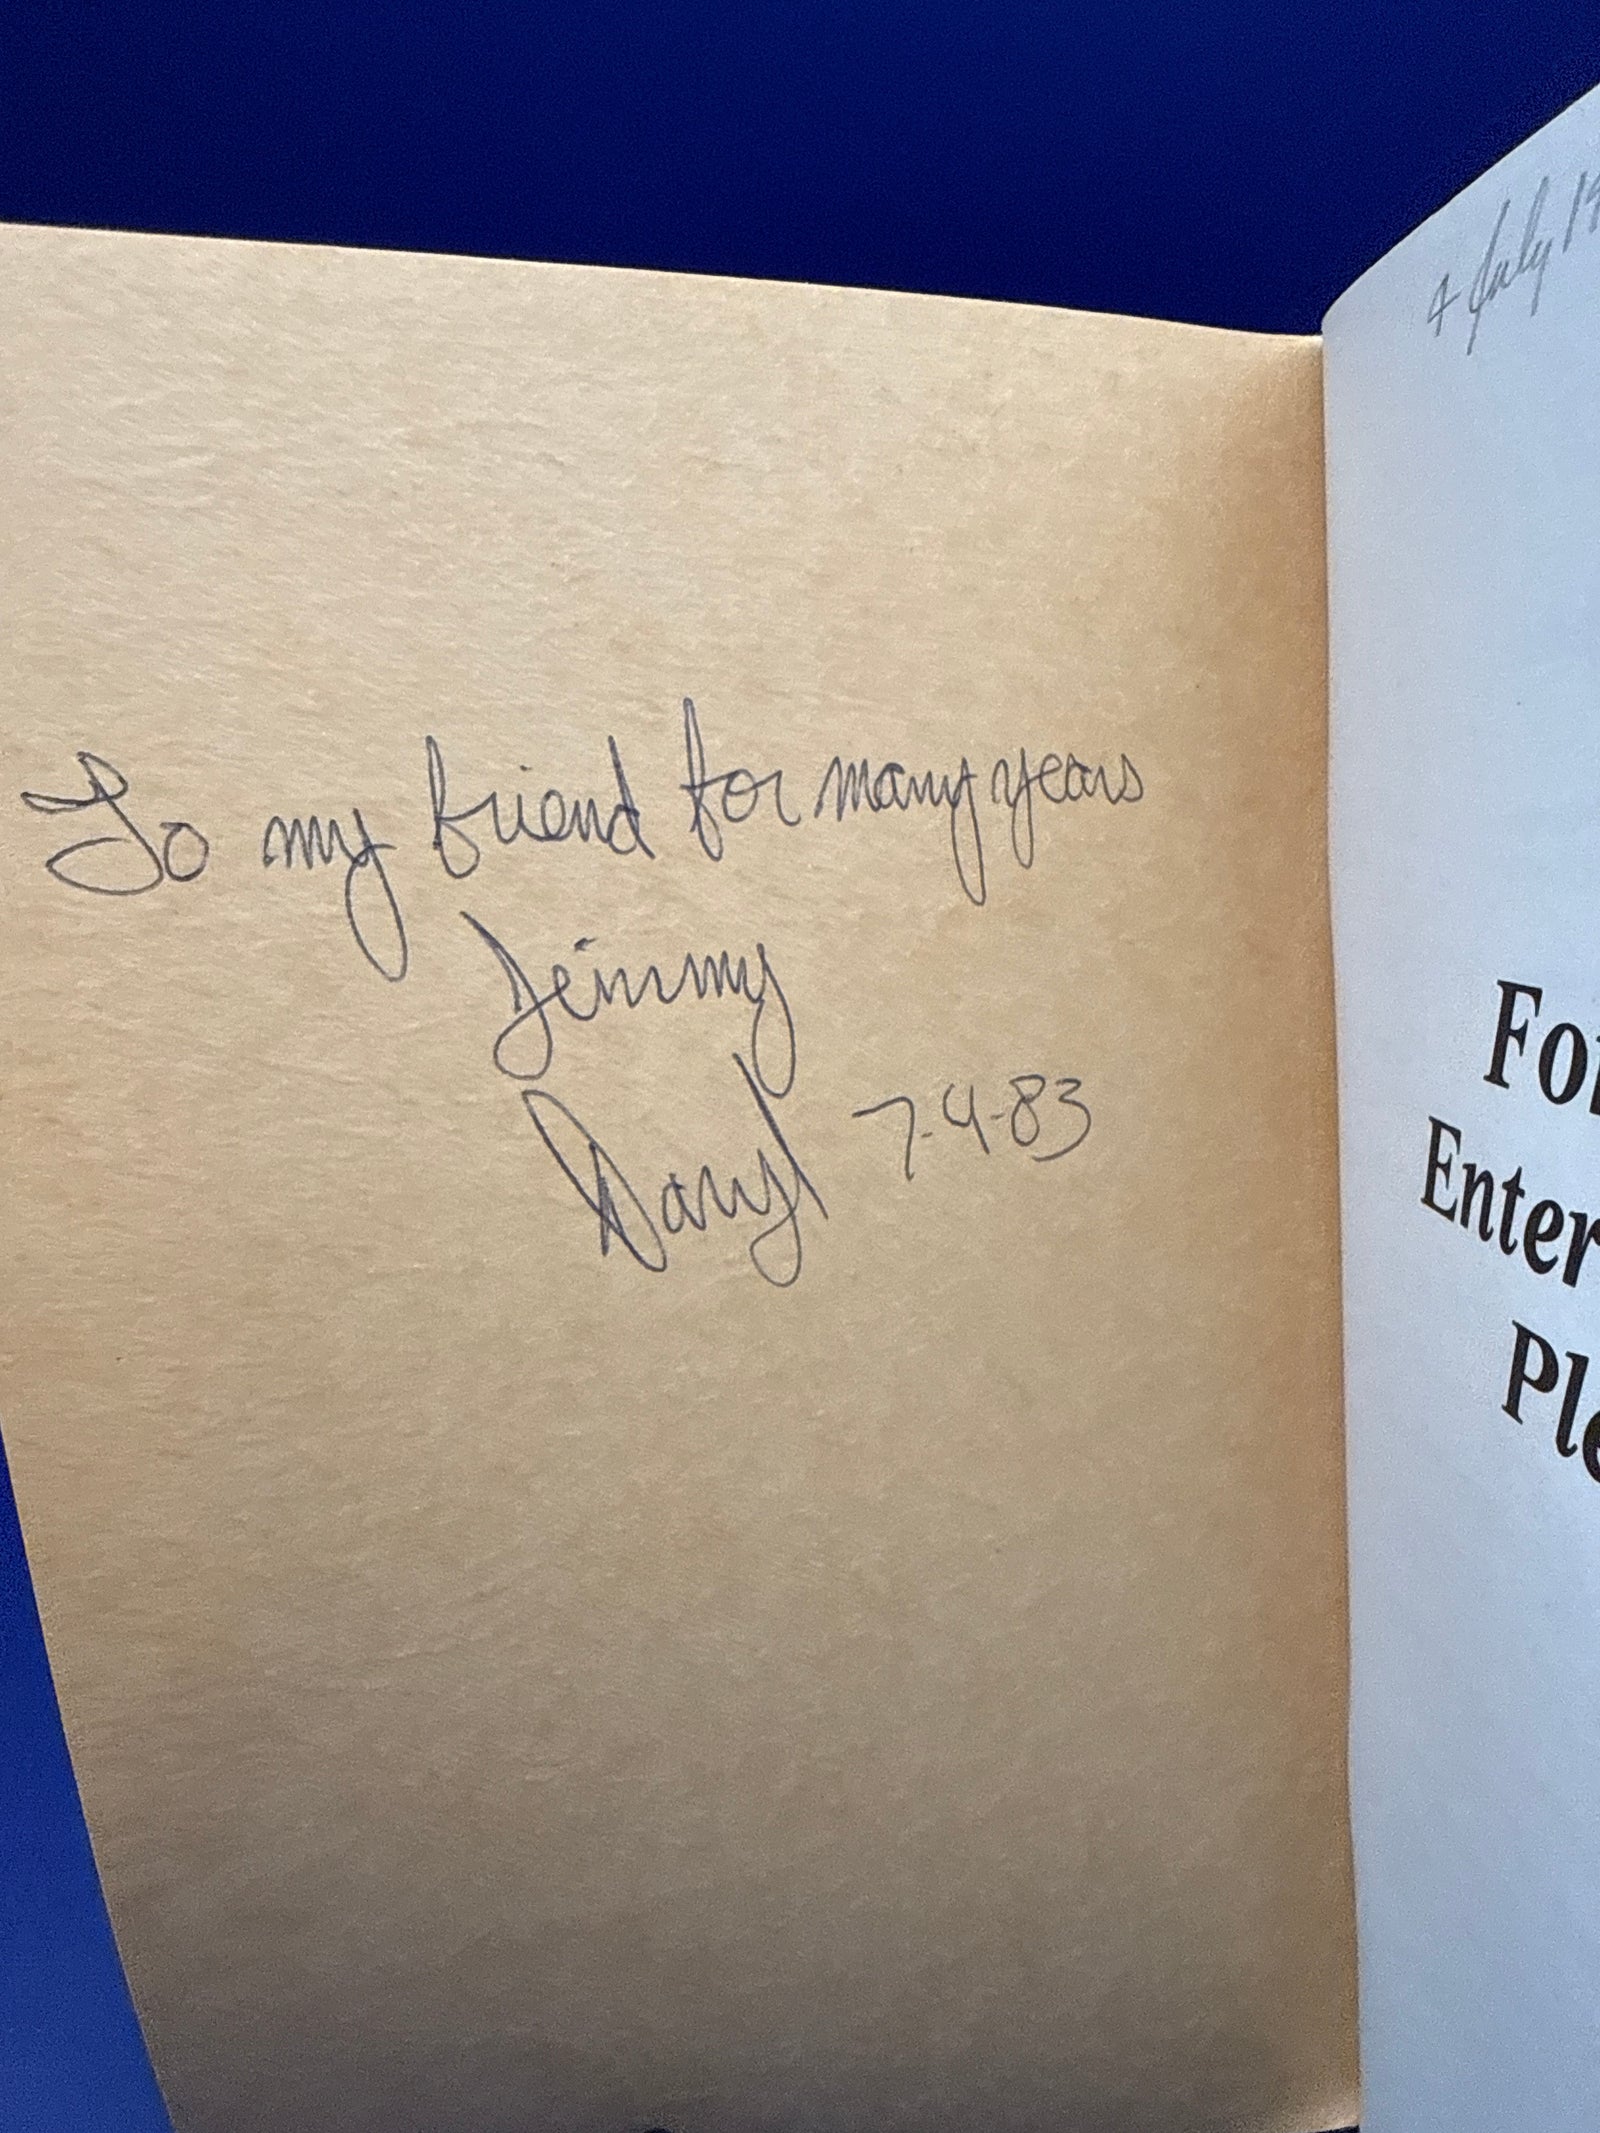 To my friend for many years
Jimmy
Daryl 7-4-83
4 July 19
For
Enter
Ple